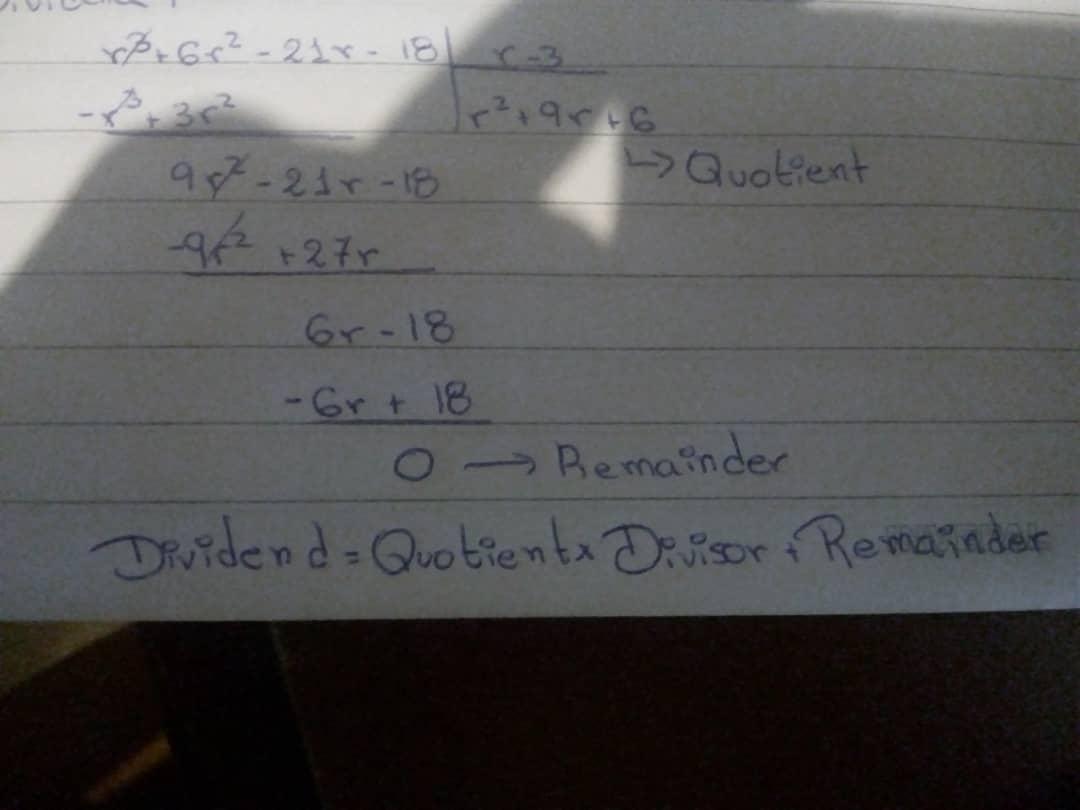 r³+6r²-21r-18 | r-3
-r³+3r² | r²+9r+6
9r²-21r-18 ↳ Quotient
-9r²+27r
6r-18
-6r+18
0 → Remainder
Dividend=Quotient×Divisor+Remainder